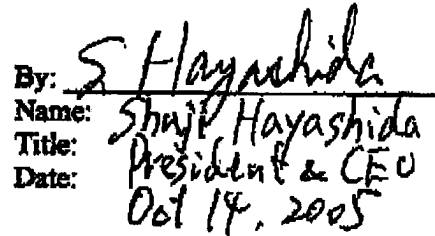 By: S Hayashida
Name: Shuji Hayashida
Title: President & CEO
Date: Oct 14, 2005